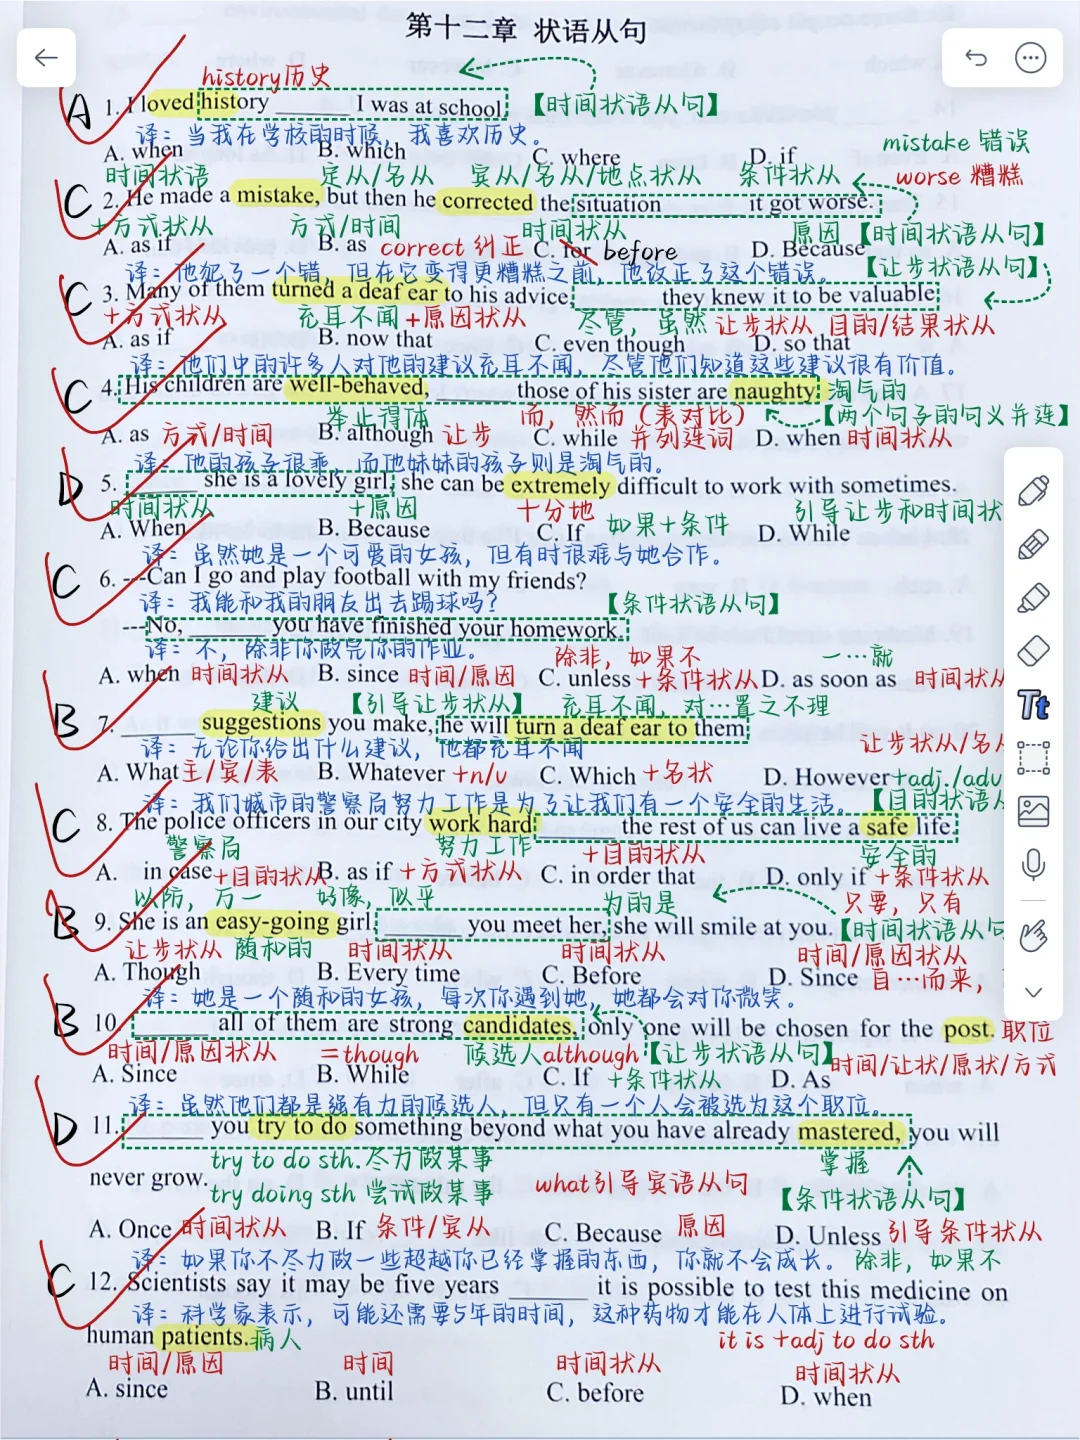 第十二章 状语从句
history历史
A 1. I loved history ______ I was at school. 【时间状语从句】
译：当我在学校的时候，我喜欢历史。
mistake 错误
A. when B. which C. where D. if
时间状语 定从/名从 宾从/名从/地点状从 条件状从 worse 糟糕
C 2. He made a mistake, but then he corrected the situation ______ it got worse.
+方式状从 方式/时间 时间状从 原因【时间状语从句】
A. as if B. as correct 纠正 C. for before D. Because
译：他犯了一个错，但在它变得更糟糕之前，他改正了这个错误。 【让步状语从句】
C 3. Many of them turned a deaf ear to his advice, ______ they knew it to be valuable.
+方式状从 充耳不闻+原因状从 尽管，虽然 让步状从 目的/结果状从
A. as if B. now that C. even though D. so that
译：他们中的许多人对他的建议充耳不闻，尽管他们知道这些建议很有价值。
C 4. His children are well-behaved, ______ those of his sister are naughty. 淘气的
举止得体 而，然而（表对比） 【两个句子的句义并连】
A. as 方式/时间 B. although 让步 C. while 并列连词 D. when 时间状从
译：他的孩子很乖，而他妹妹的孩子则是淘气的。
D 5. ______ she is a lovely girl, she can be extremely difficult to work with sometimes.
时间状从 +原因 十分地 如果+条件 引导让步和时间状
A. When B. Because C. If D. While
译：虽然她是一个可爱的女孩，但有时很难与她合作。
C 6. ---Can I go and play football with my friends?
译：我能和我的朋友出去踢球吗？ 【条件状语从句】
---No, ______ you have finished your homework.
译：不，除非你做完你的作业。
除非，如果不 一…就
A. when 时间状从 B. since 时间/原因 C. unless+条件状从 D. as soon as 时间状从
建议 【引导让步状从】 充耳不闻，对…置之不理
B 7. ______ suggestions you make, he will turn a deaf ear to them.
译：无论你给出什么建议，他都充耳不闻
让步状从/名从
A. What主/宾/表 B. Whatever +n/v C. Which +名状 D. However+adj./adv
译：我们城市的警察局努力工作是为了让我们有一个安全的生活。 【目的状语从
C 8. The police officers in our city work hard ______ the rest of us can live a safe life.
警察局 努力工作 +目的状从 安全的
A. in case+目的状从 B. as if +方式状从 C. in order that D. only if +条件状从
以防，万一 好像，似乎 为的是 只要，只有
B 9. She is an easy-going girl, ______ you meet her, she will smile at you. 【时间状语从句
让步状从 随和的 时间状从 时间状从 时间/原因状从
A. Though B. Every time C. Before D. Since 自…而来，
译：她是一个随和的女孩，每次你遇到她，她都会对你微笑。
B 10. ______ all of them are strong candidates, only one will be chosen for the post. 职位
时间/原因状从 =though 候选人although【让步状语从句】时间/让状/原状/方式
A. Since B. While C. If +条件状从 D. As
译：虽然他们都是强有力的候选人，但只有一个人会被选为这个职位。
D 11. ______ you try to do something beyond what you have already mastered, you will
try to do sth.尽力做某事 掌握
never grow.
try doing sth 尝试做某事 what引导宾语从句 【条件状语从句】
A. Once 时间状从 B. If 条件/宾从 C. Because 原因 D. Unless 引导条件状从
译：如果你不尽力做一些超越你已经掌握的东西，你就不会成长。 除非，如果不
C 12. Scientists say it may be five years ______ it is possible to test this medicine on
译：科学家表示，可能还需要5年的时间，这种药物才能在人体上进行试验。
human patients.病人 it is +adj to do sth
时间/原因 时间 时间状从 时间状从
A. since B. until C. before D. when
Tt